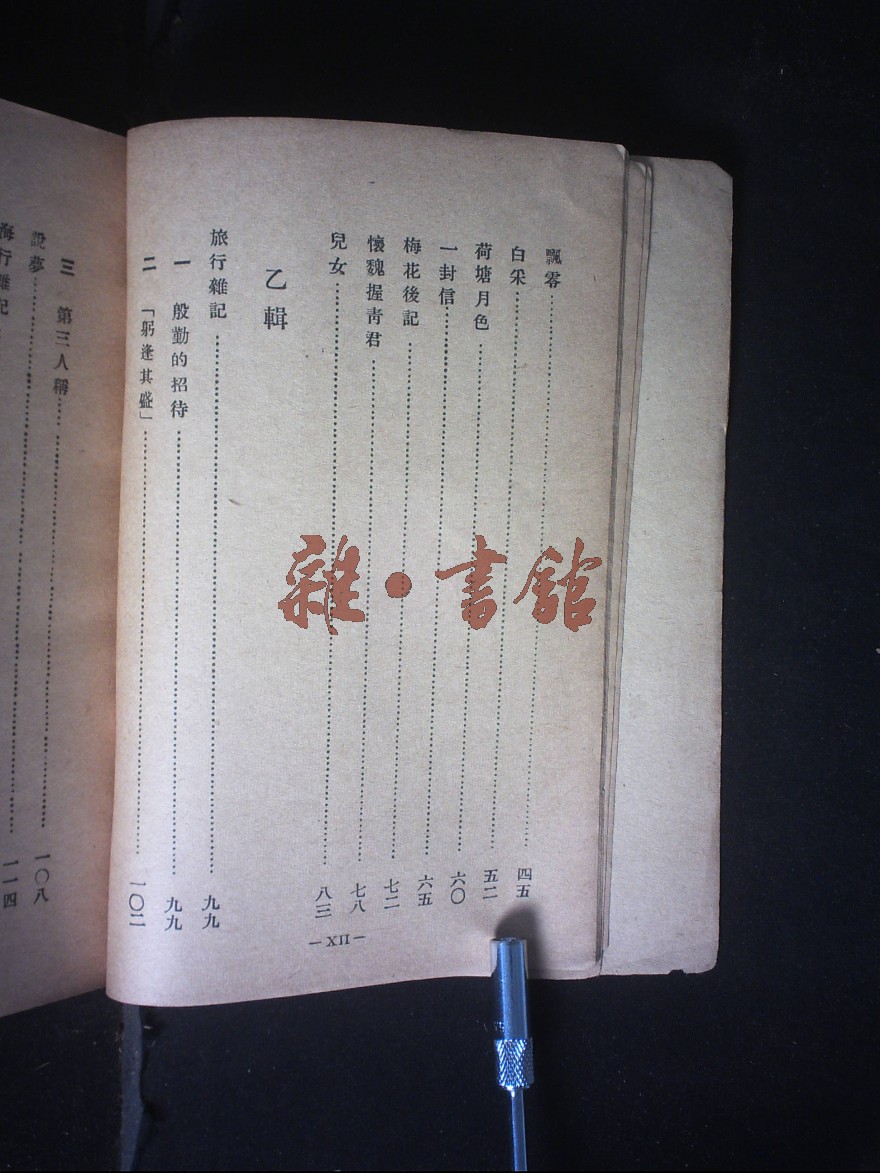 飄零⋯⋯四五
白采⋯⋯五二
荷塘月色⋯⋯六〇
一封信⋯⋯六五
梅花後記⋯⋯七二
懷魏握青君⋯⋯七八
兒女⋯⋯八三
乙輯
旅行雜記⋯⋯九九
一 殷勤的招待⋯⋯九九
二 「躬逢其盛」⋯⋯一〇二
—XII—
三 第三人稱⋯⋯一〇八
說夢⋯⋯一一四
海行雜記
雜·書館